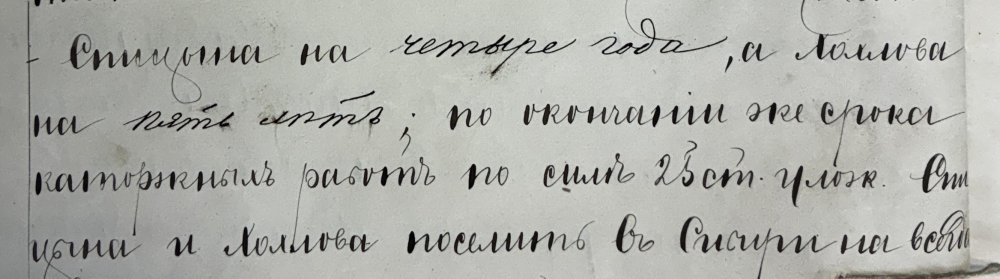 Спицына на четыре года, а Хохлова
на пять лѣтъ; по окончаніи же срока
каторжныхъ работъ по силѣ 25 ст. улож. Спи
цына и Хохлова поселить въ Сибири на всегда